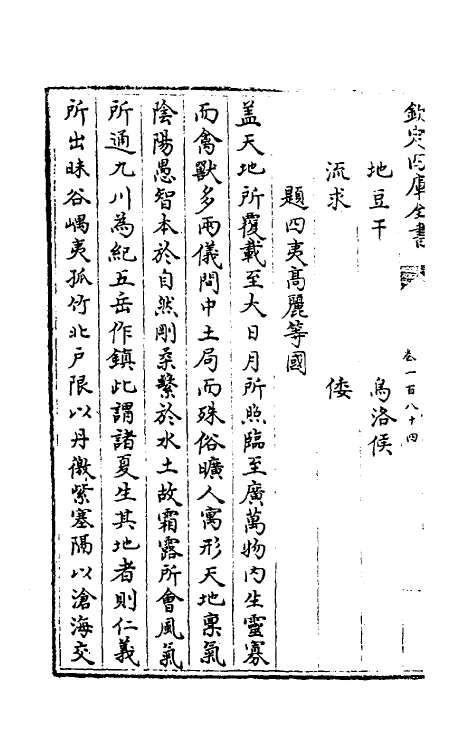 欽定四庫全書
卷一百八十四
地豆干 烏洛侯
流求 倭
題四夷高麗等國
蓋天地所覆載至大日月所照臨至廣萬物内生靈寡
而禽獸多兩儀間中土局而殊俗曠人寓形天地禀氣
陰陽愚智本於自然剛柔繫於水土故霜露所會風氣
所通九川為紀五岳作鎮此謂諸夏生其地者則仁義
所出昧谷嵎夷孤竹北戸限以丹徼紫塞隔以滄海交